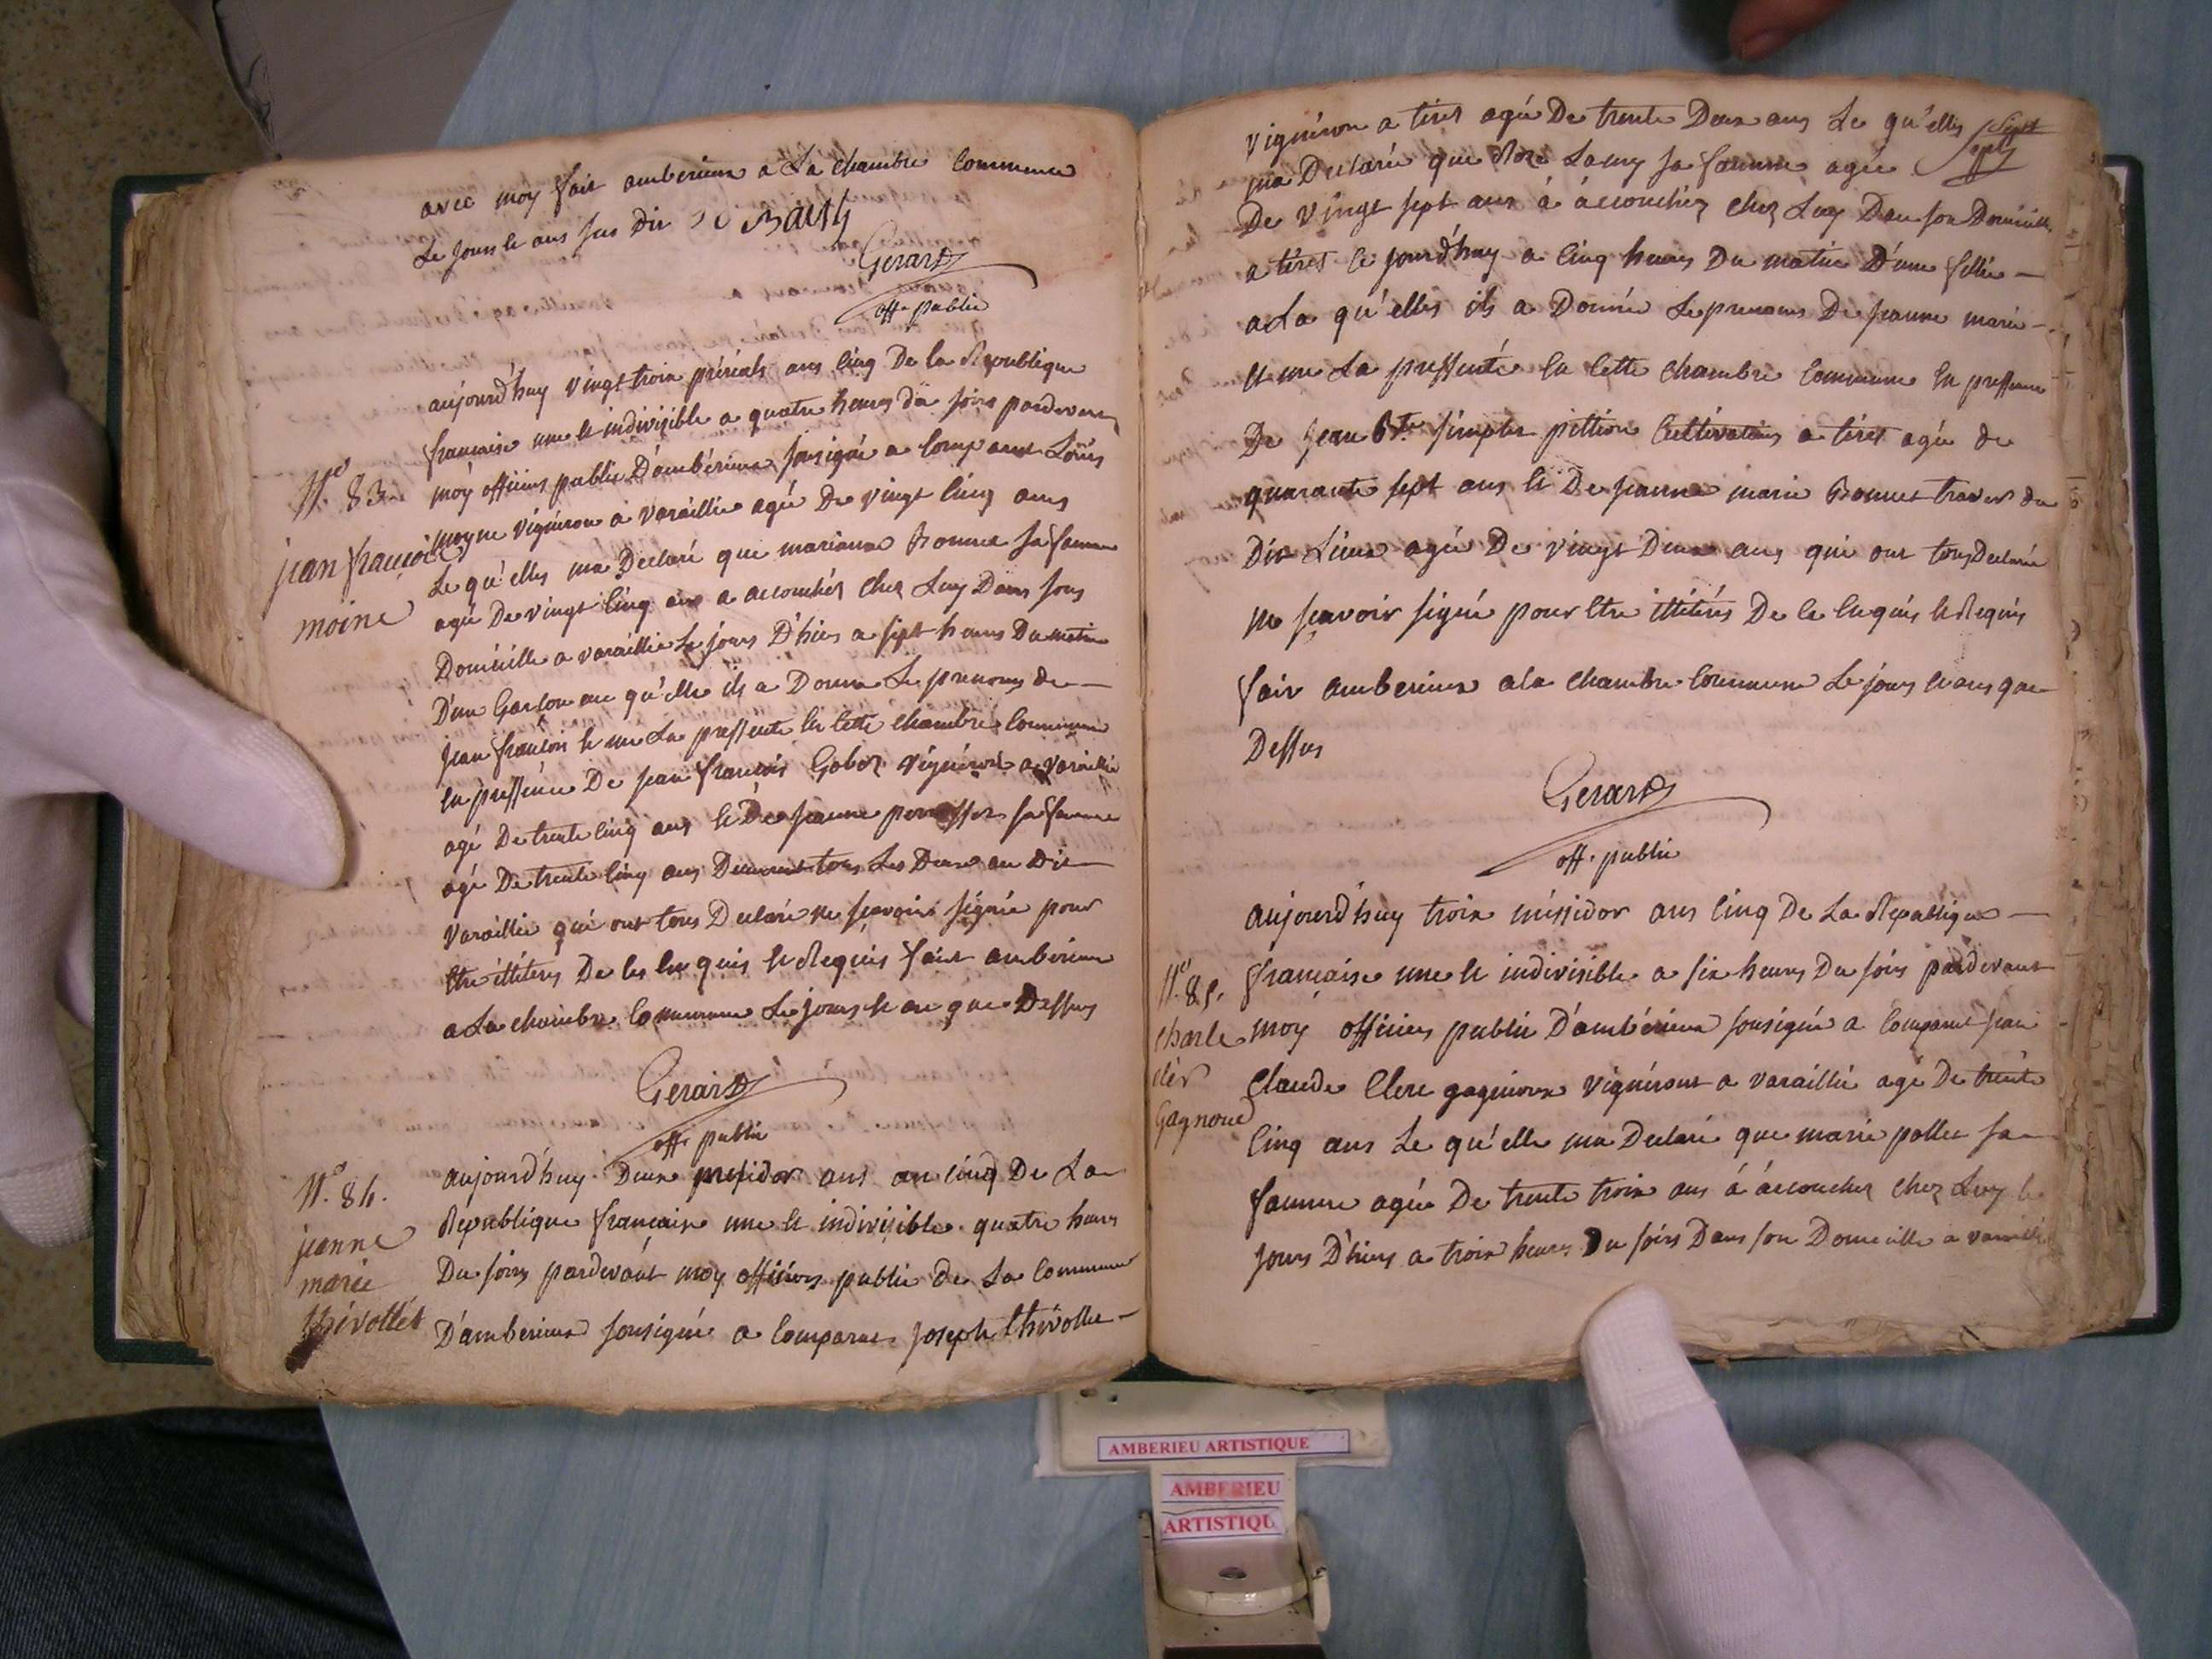 avec moy fait amberieux a La chambre Commune
Le jours le ans sus dit
Gerard
off. public
aujourd'huy vingt trois prérials ans cinq De la Republique
française une et indivisible a quatre heures du soirs pardevant
N.º 83
moy officiers public D'ambérieux sousigné a comparut Loüis
moyne vigneron a varaillie agé De vingt cinq ans
jean françois
moine
Le qu'elles ma Declaré que marianne Bonnet sa famme
agé De vingt cinq ans a accouchés chez Luy Dans sons
Domicille a varaillie Le jours D'hiers a sept heures Du matin
D'un Garson au qu'elle ils a Donné Le prenoms de
jean francois et me La pressenté en cette chambre Commune
en pressence De jean francois Goboz vigneron a varaillie
agé De trente cinq ans et De jeanne sa famme
agé De trente cinq ans Demeurant tous Les Deux au Dit
varaillie qui ont tous Declaré ne sçavoirs signée pour
etre illiteres De les enquis et Requis fait amberieux
a La chambre Commune Le jours et an que Dessus
Gerard
off. public
N.º 84.
jeanne
marie
thivollet
aujourd'huy Deux messidor ans an cinq De La
Republique française une et indivisible quatre heures
Du soirs pardevant moy officiers public de La Commune
D'amberieux sousignée a Comparut joseph thivollet
vigneron a tiret agée De trente Deux ans Le qu'elles
sept
ma Declarée que Roze Lamy sa famme agée
De vingt sept ans á áccouchéz chez Luy Dan son Domicille
a tiret le jourd'huy a cinq heures Du matin D'une fillie
a La qu'elles ils a Donnée Le prenoms De jeanne marie
et me La pressenté en cette chambre Commune en pressence
De jean Bte simples pittion Cultivateurs a tiret agée de
quarante sept ans et De jeanne marie Bonnet du
Dit Lieux agée De vingt Deux ans qui ont tous Declarée
ne sçavoir signée pour etre illitérés De ce enquis et Requis
fait amberieux a la chambre Commune Le jours et ans que
Dessus
Gerard
off. public
aujourd'huy trois méssidor ans cinq De La Republique
N.º 85.
charle
clér
Gagnoud
française une et indivisible a six heures Du soirs pardevant
moy officiers public D'ambérieux sousignée a Comparut jean
Claude Clerc gagnieux vignéront a varaillie agé De trente
cinq ans Le qu'elle ma Declaré que marie pollet sa
famme agée De trente trois ans á áccouchez chez Luy le
jours D'hiers a trois heures Du soirs Dans son Domicille a varaillie
AMBERIEU ARTISTIQUE
AMBERIEU
ARTISTIQU